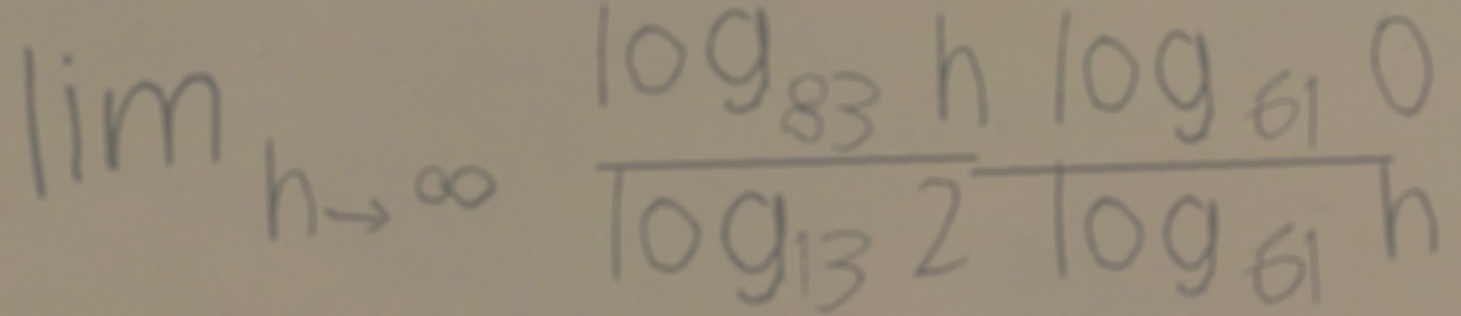 \lim_{h \to \infty} \frac{\log_{83} h}{\log_{13} 2} \frac{\log_{61} 0}{\log_{61} h}